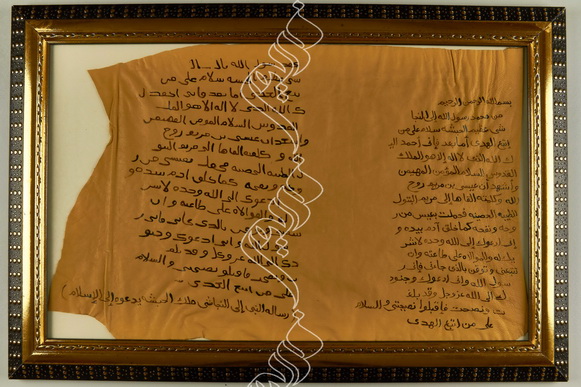 بسم الله الرحمن الرحيم
من محمد رسول الله إلى النجا
شي عظيم الحبشة سلام على من
اتبع الهدى أما بعد فإني أحمد إلي
ك الله الذي لا إله إلا هو الملك
القدوس السلام المؤمن المهيمن
وأشهد أن عيسى بن مريم روح
الله وكلمته ألقاها إلى مريم البتول
الطيبة الحصينة فحملت بعيسى من ر
وحه ونفخه كما خلق آدم بيده و
إني أدعوك إلى الله وحده لا شر
يك له والموالاة على طاعته وان
تتبعني وتوقن بالذي جاءني فإني ر
سول الله وإني أدعوك وجنود
ك إلى الله عز وجل وقد بلغ
ت ونصحت فاقبلوا نصيحتي والسلام
على من اتبع الهدى
الله
الحبسه سلام على من
اما بعد فاني احمد ال
ك الله الدي لا اله الا هو الملك
القدوس السلام المومن المهيمن
عيسى بن مريم روح
و كلمته القاها الى مريم البتو
الطيبه الحصينه فحملت بعيسى من ر
كما خلق ادم بيده و
ادعوك الى الله وحده لا سر
والموالاه على طاعته و ان
بالدي جاني فاني ر
اني ادعوك وجنو
الله عز وجل وقد بلغ
فاقبلو نصيحتي و السلام
على من اتبع الهدى
رسالة النبي إلى النجاشي ملك الحبشة يدعوه إلى الإسلام)